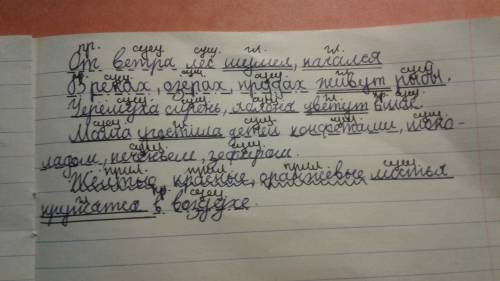 пр. сущ. сущ. гл. гл.
От ветра лес шумел, качался
пр. сущ. сущ. сущ. гл. сущ.
В реках, озерах, прудах живут рыбы.
сущ. сущ. сущ. гл. пр. сущ.
Черемуха сирень, яблоня цветут в мае.
сущ. гл. сущ. сущ. сущ.
Мама угостила детей конфетами, шоко-
сущ. сущ.
ладом, печеньем, зефиром.
прил. прил. прил. сущ.
Желтые, красные, оранжевые листья
гл. пр. сущ.
кружатся в воздухе.